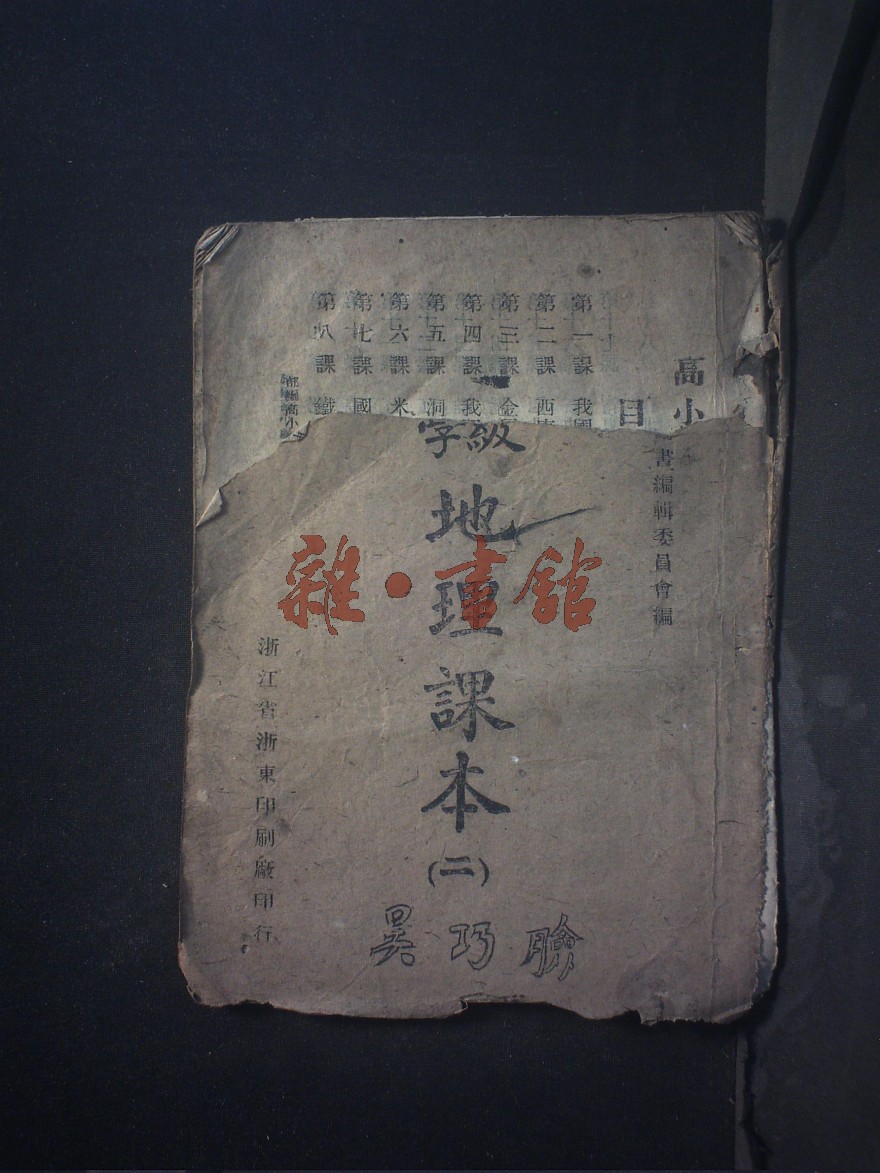 高小
目
第一課 我國
第二課 西
第三課 金
第四課 我
第五課 洞
第六課 米
第七課 國
第八課 鐵
書編輯委員會編
級學
地理課本
(二)
浙江省浙東印刷廠印行
吴巧臉
雜·書館